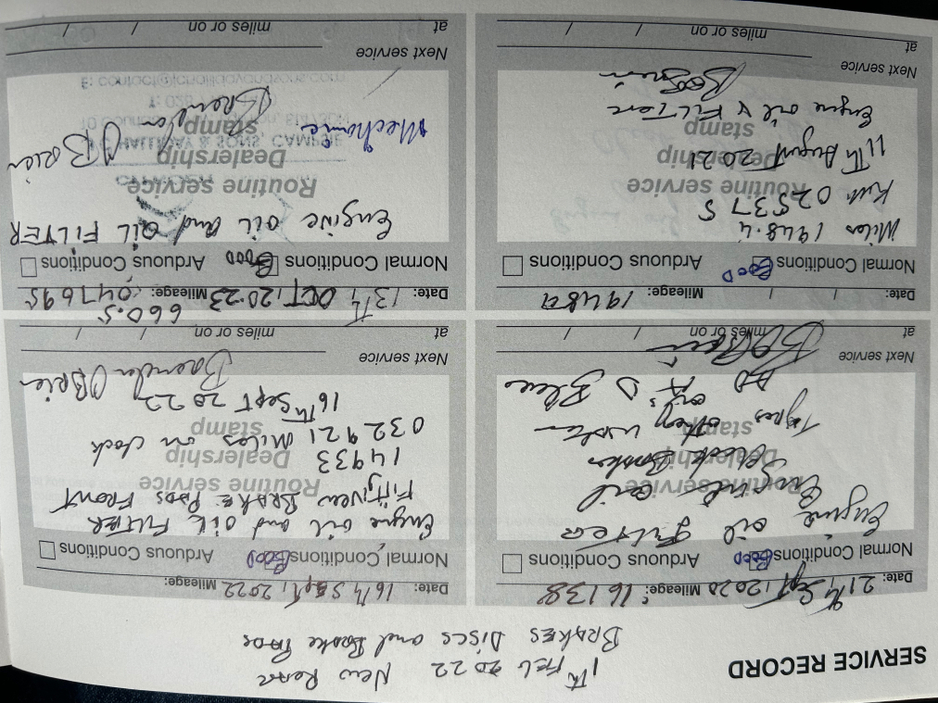 SERVICE RECORD
1TH FEB 2022 New Rear
BRAKES DISCS and Brake PADS
Date: 21st Sept, 2020 Mileage: 16138
Normal Conditions GOOD Arduous Conditions
Engine oil Filter
Routine service
Dealership
stamp
Tyres
Next service
at miles or on / /
Date: 16th Sept, 2022 Mileage:
Normal Conditions GOOD Arduous Conditions
Engine oil and OIL FILTER
Fit New BRAKE PADS FRONT
Routine service
14933
Dealership
032921 Miles on clock
stamp
16TH SEPT 2022
Brendan O'Brien
Next service
at miles or on / /
Date: 19489 Mileage:
Normal Conditions GOOD Arduous Conditions
Miles 1948.4
Km 025375
Routine service
11TH August 2021
Dealership
stamp
Engine oil & FILTER
Next service
at miles or on / /
660.5
Date: 13th OCT, 2023 Mileage: 047695
Normal Conditions GOOD Arduous Conditions
Engine oil and OIL FILTER
Routine service
Dealership
HALLIDAY & SONS, CAMPSIE
stamp
Mechanic Brendan O'Brien
Next service
at miles or on / /